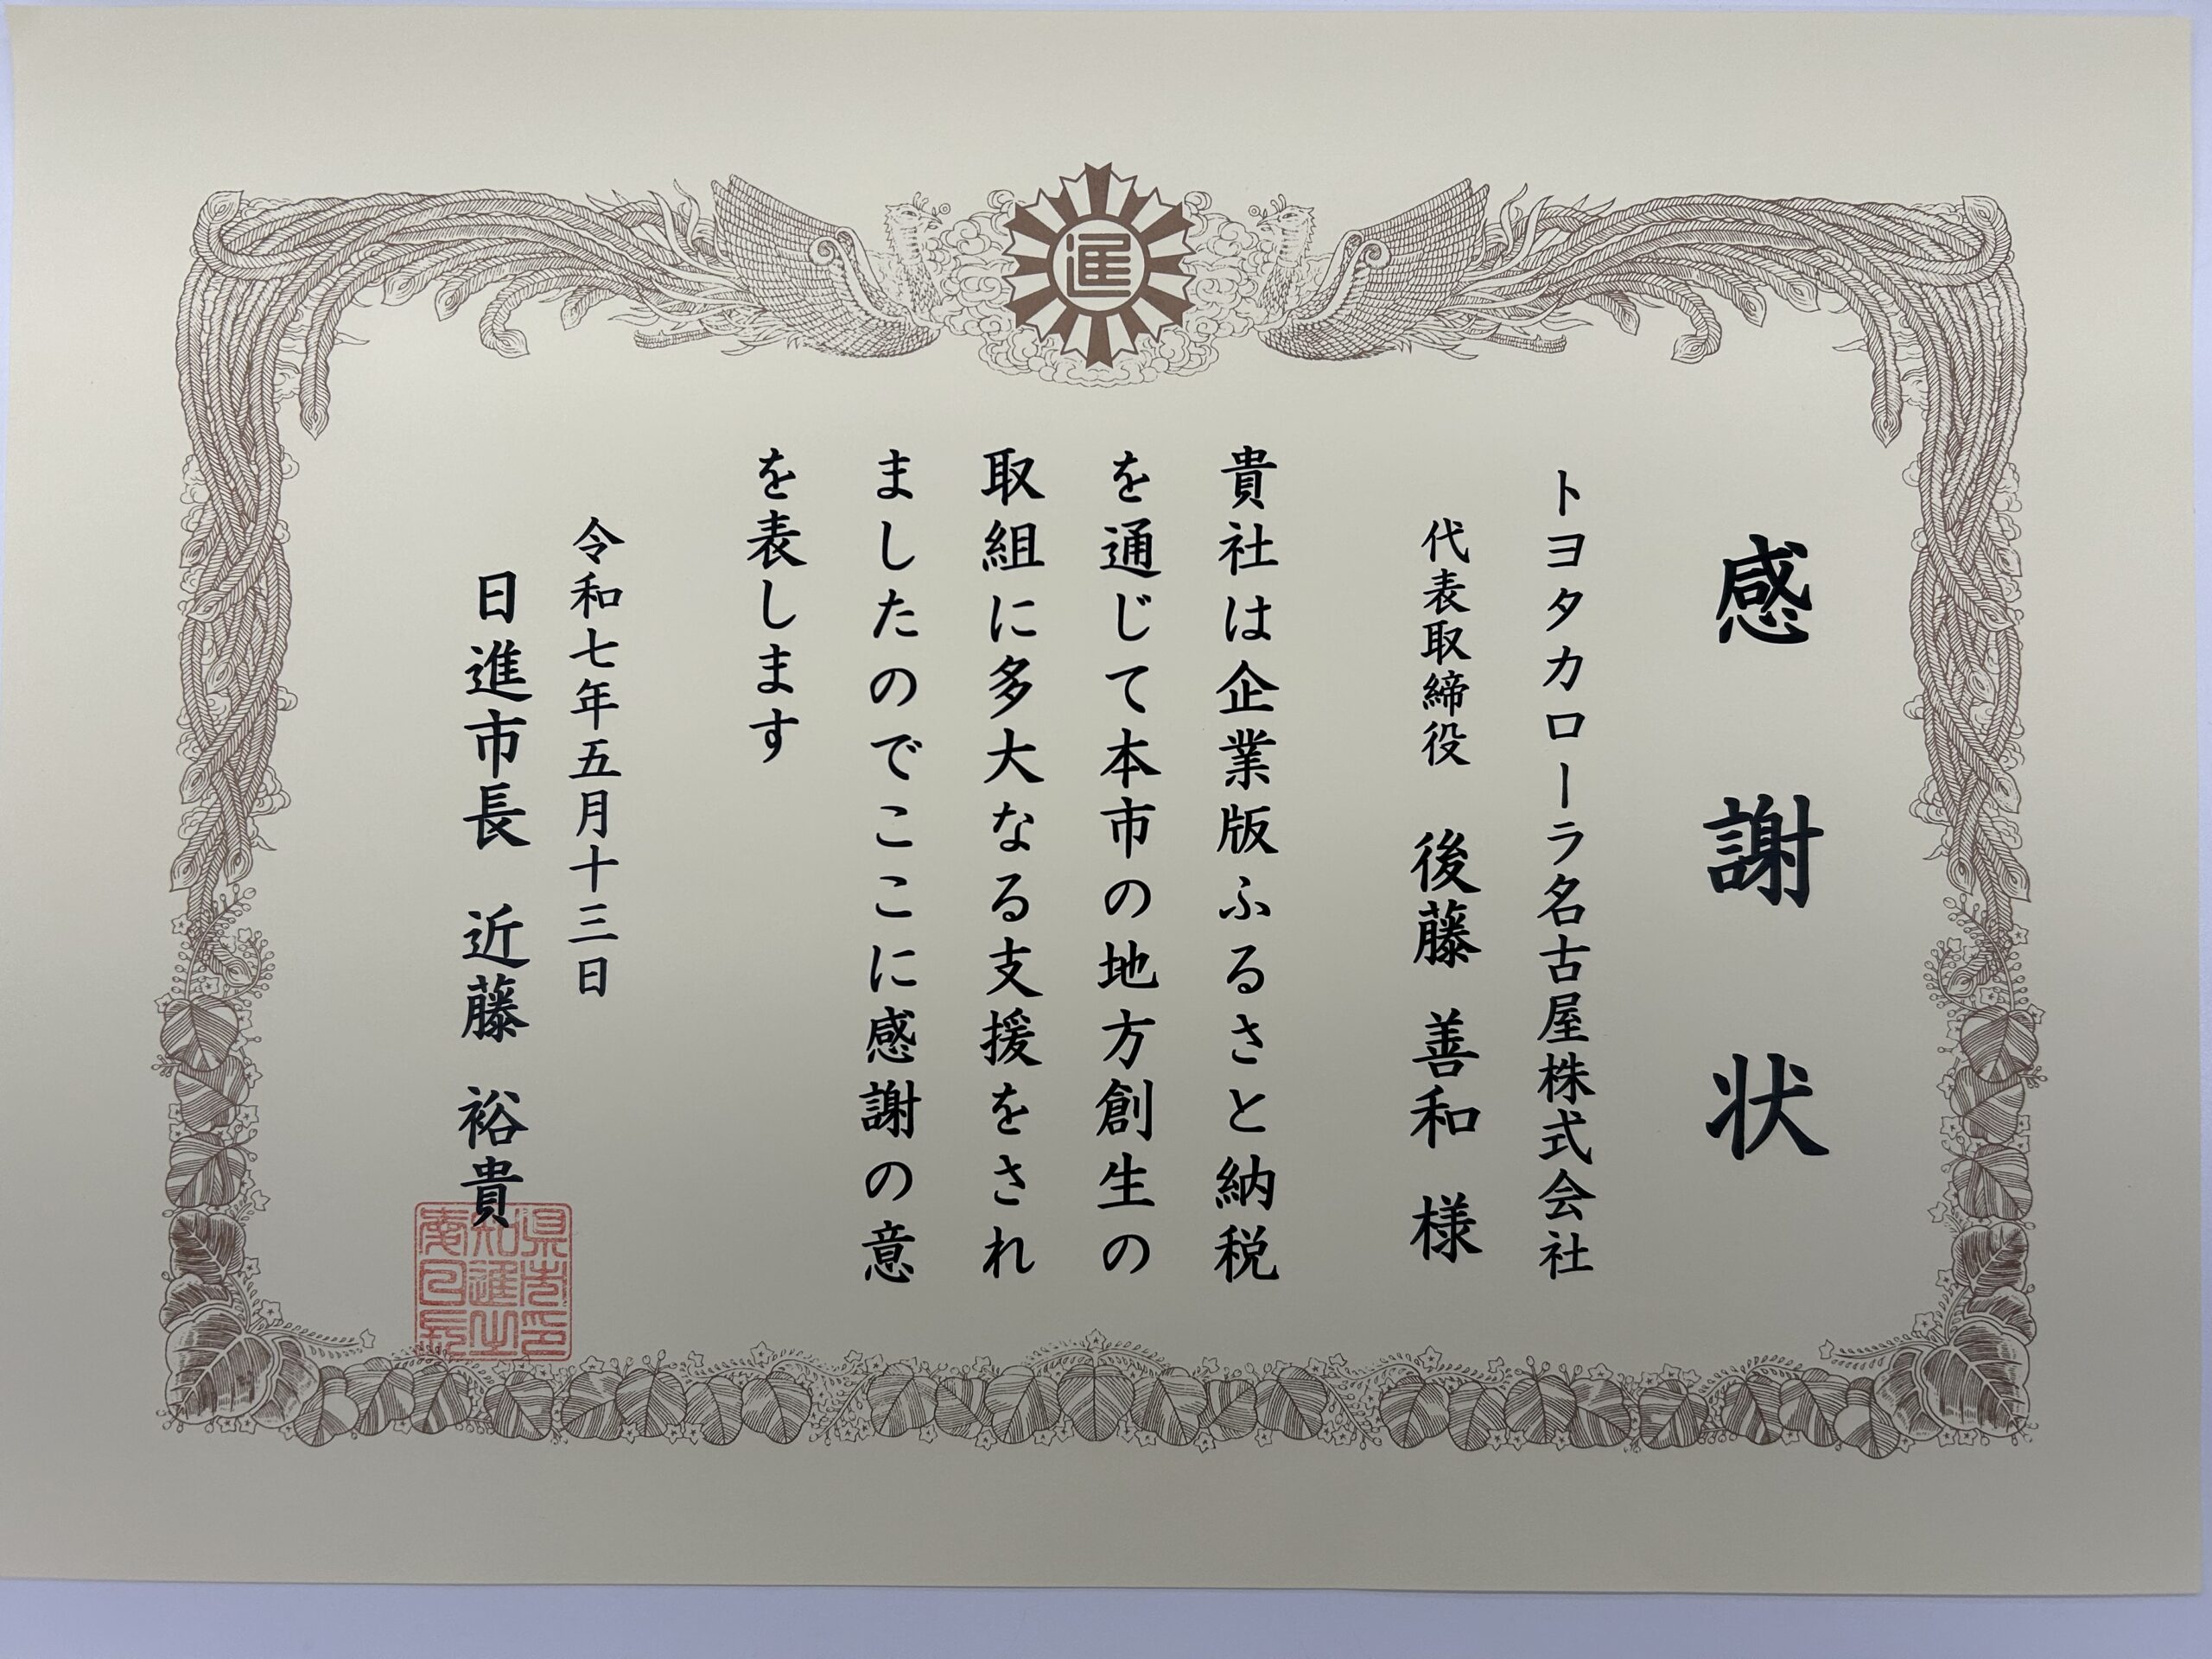 感謝状
トヨタカローラ名古屋株式会社
代表取締役 後藤 善和 様
貴社は企業版ふるさと納税
を通じて本市の地方創生の
取組に多大なる支援をされ
ましたのでここに感謝の意
を表します
令和七年五月十三日
日進市長 近藤 裕貴
進